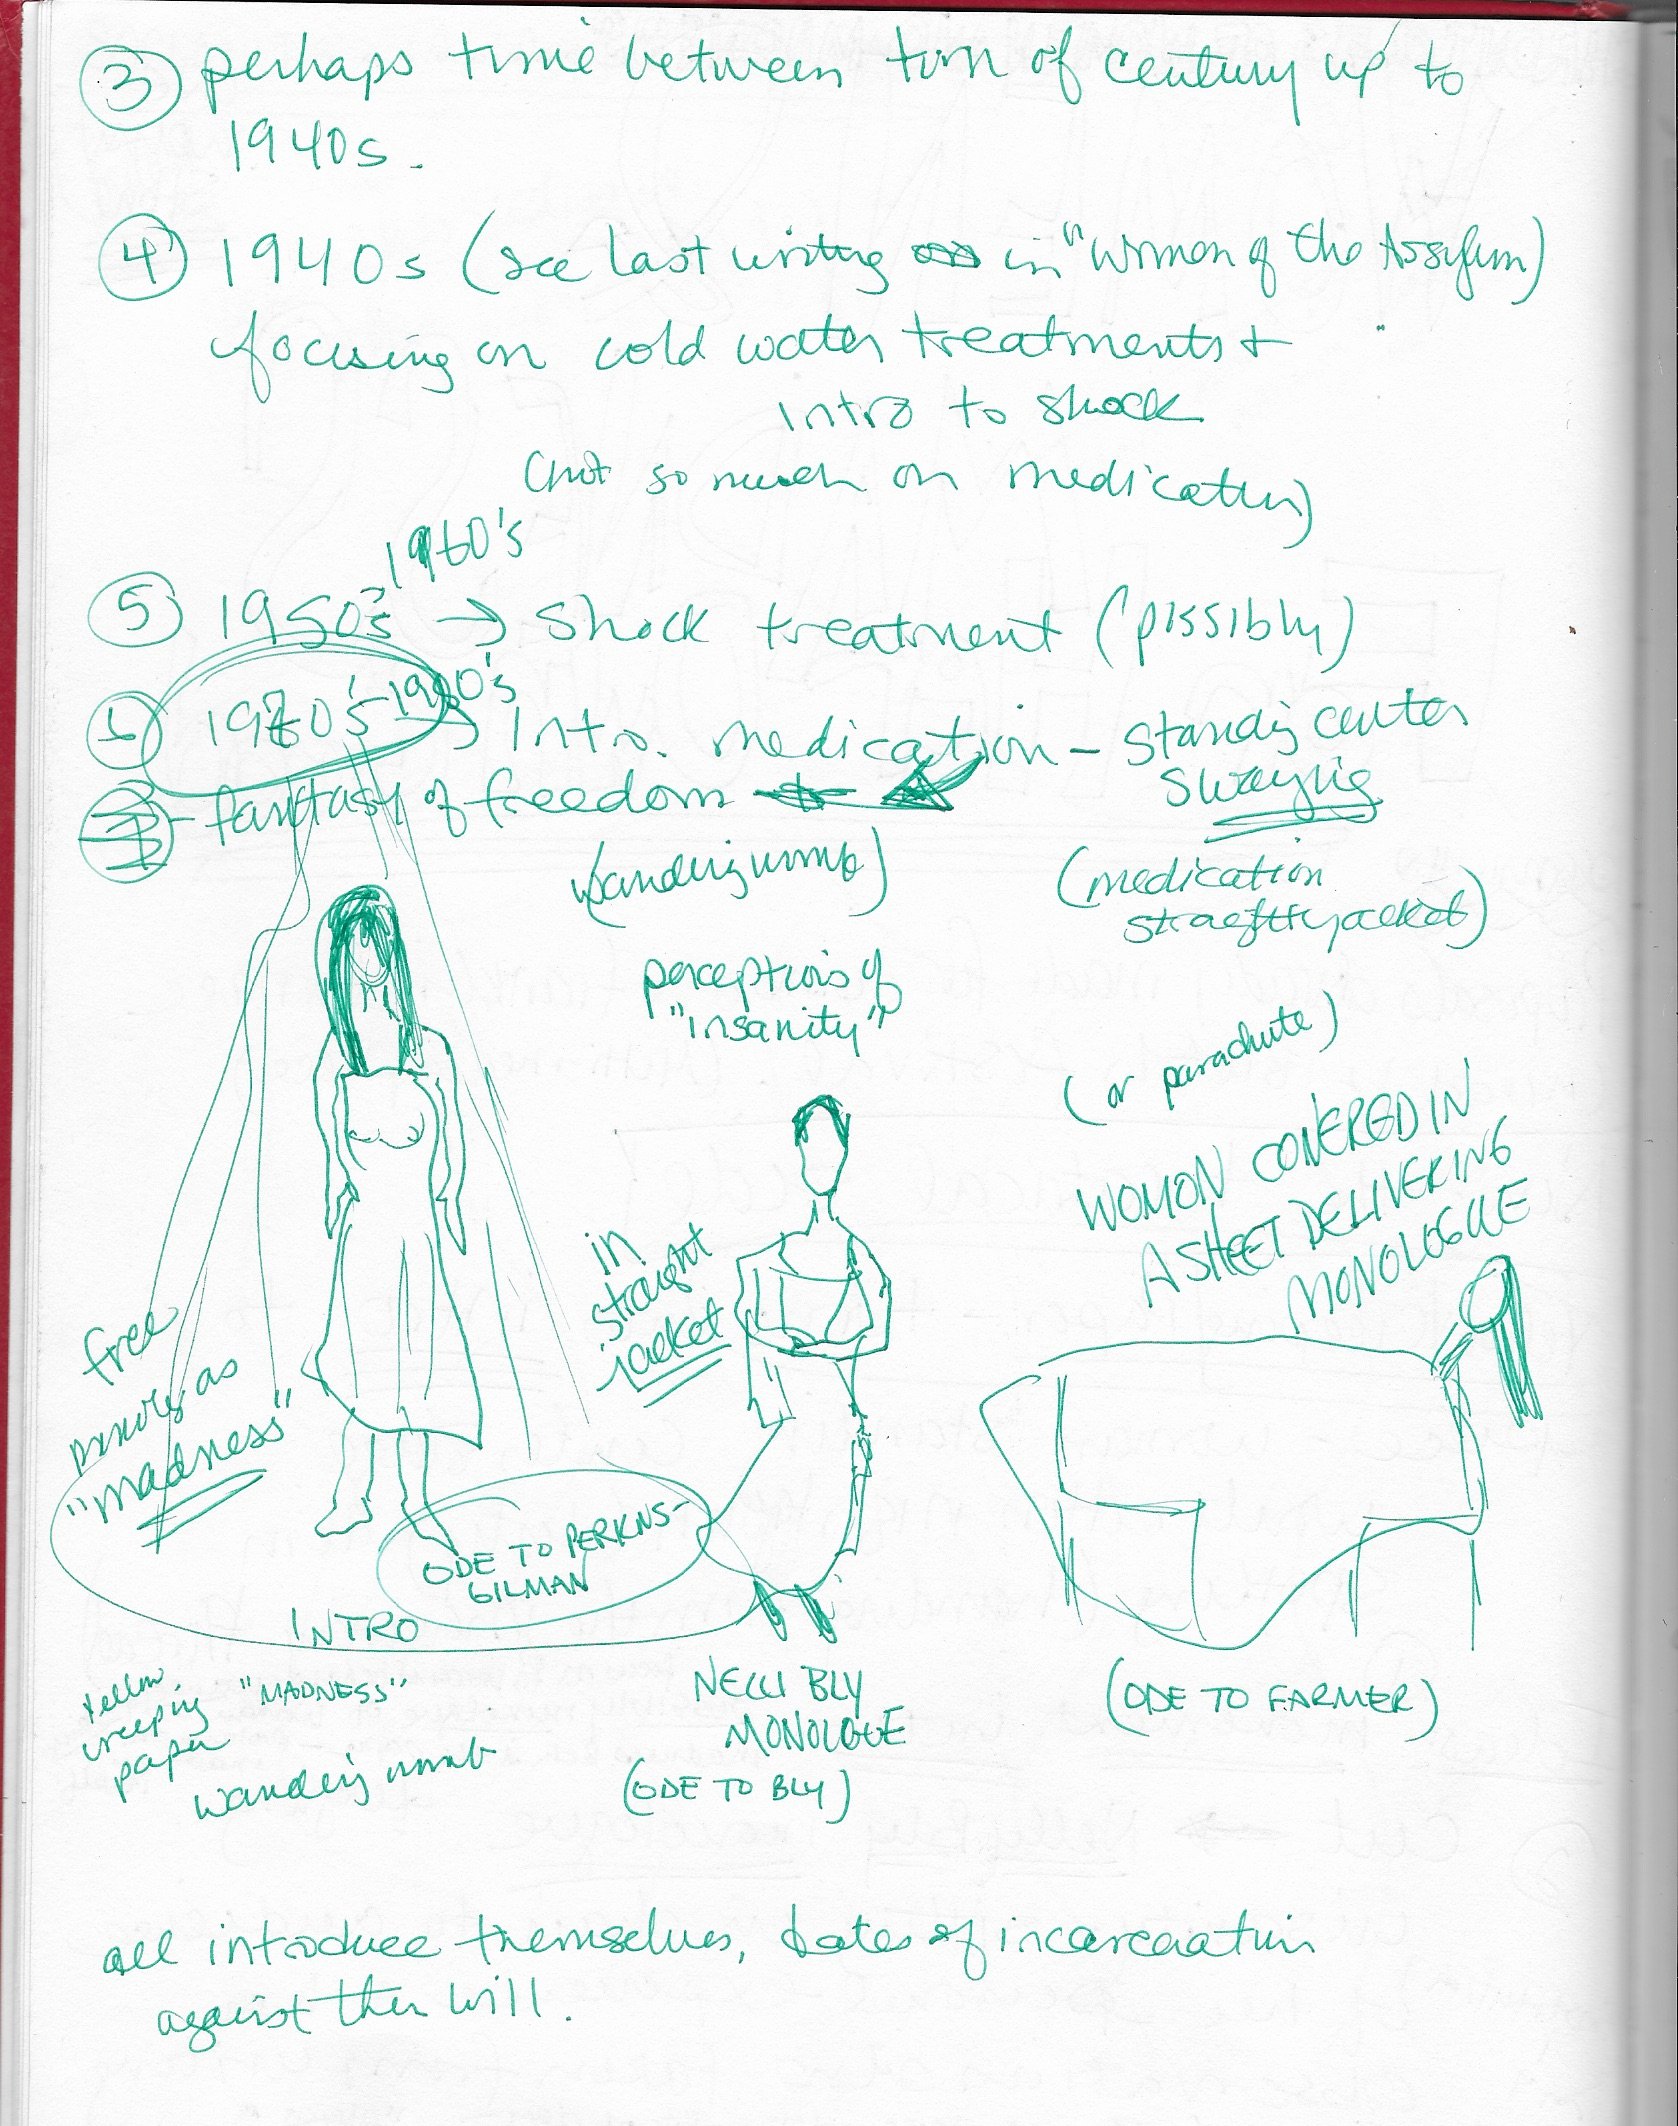 ③ perhaps time between turn of century up to
1940s.
④ 1940s (see last writing in "Women of the Assylum)
focusing on cold water treatments +
intro to shock
(not so much on medication)
1960's
⑤ 1950's → Shock treatment (possibly)
⑥ 1970's - 1980's → Intro. medication - standing center
swaying
⑦ - fantasy of freedom
(wandering womb)
(medication
straightjacket)
perceptions of
"insanity"
(or parachute)
WOMON COVERED IN
A SHEET DELIVERING
MONOLOGUE
in
straight
jacket
free
as
"madness"
ODE TO PERKINS-
GILMAN
INTRO
yellow
creeping
paper
"MADNESS"
wandering womb
NELLI BLY
MONOLOGUE
(ODE TO BLY)
(ODE TO FARMER)
all introduce themselves, dates of incarceration
against their will.